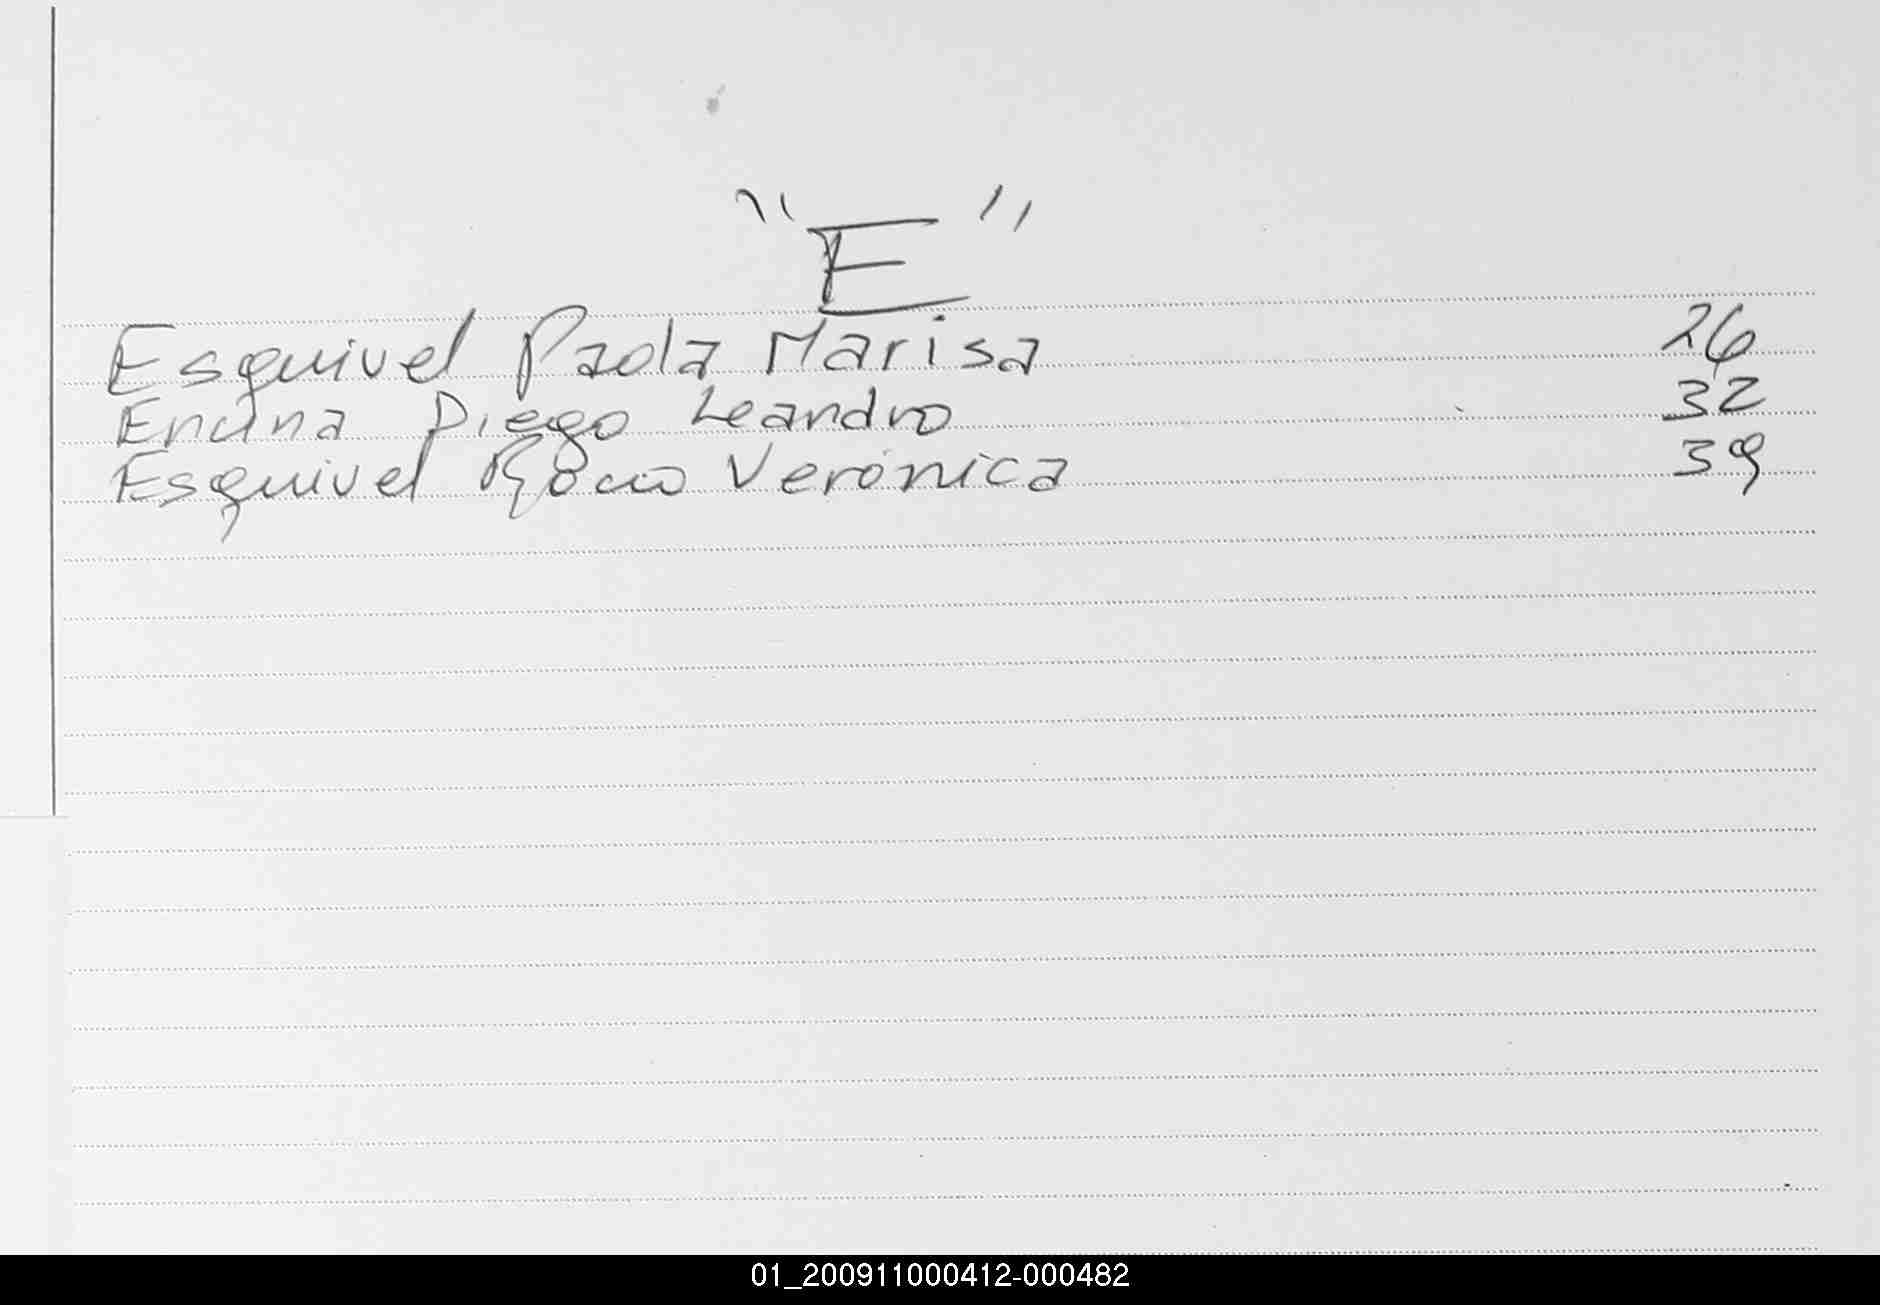 "E"
Esquivel Paola Marisa 26
Encina Diego Leandro 32
Esquivel Rocio Verónica 39
01_200911000412-000482